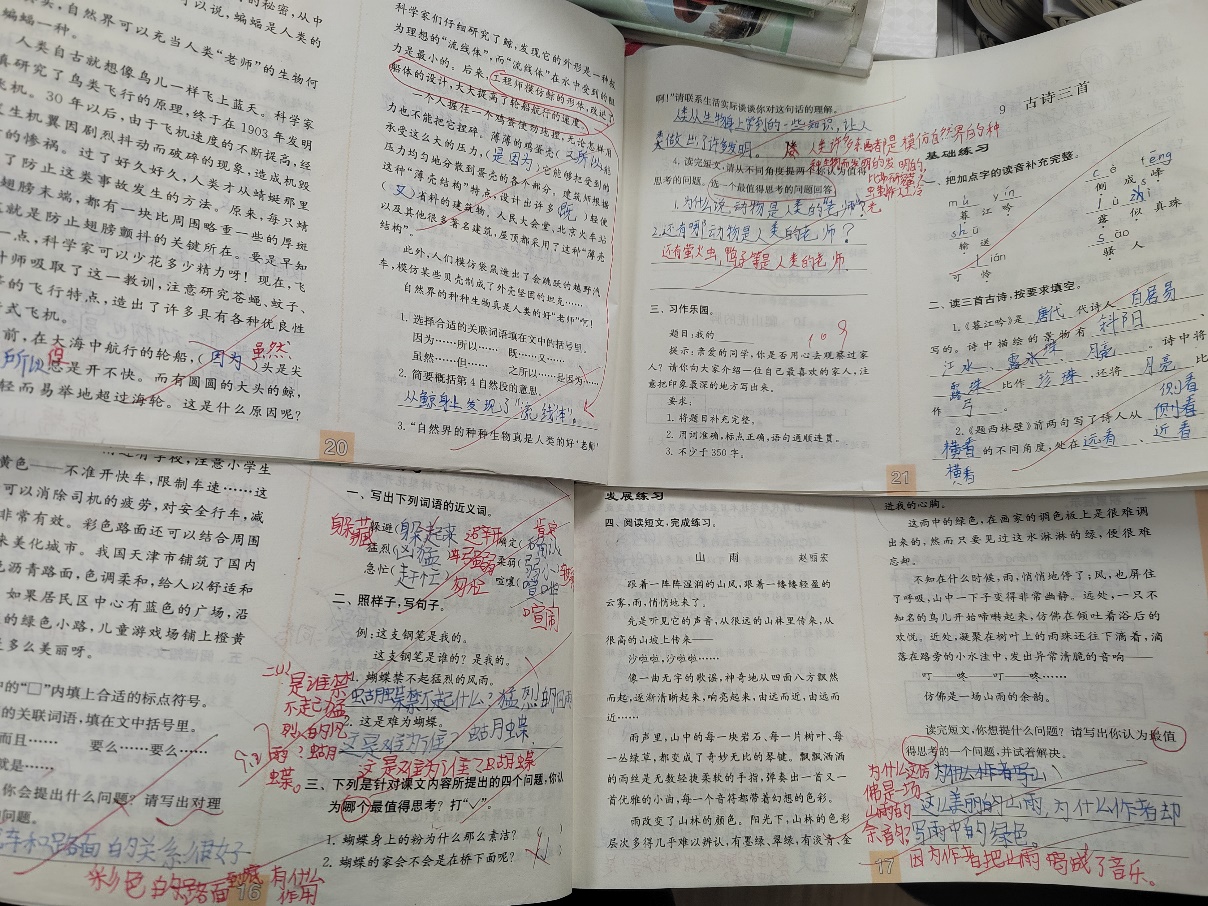 的秘密,从中
自然界可以充当人类“老师”的生物何
可以说,蝙蝠是人类的
蝙蝠一种。
人类自古就想像鸟儿一样飞上蓝天。科学家
研究了鸟类飞行的原理,终于在1903年发明
飞机。30年以后,由于飞机速度的不断提高,经
生机翼因剧烈抖动而破碎的现象,造成机毁
的惨祸。过了好久好久,人类才从蜻蜓那里
了防止这类事故发生的方法。原来,每只蜻
翅膀末端,都有一块比周围略重一些的厚斑
就是防止翅膀颤抖的关键所在。要是早知
一点,科学家可以少花多少精力呀!现在,飞
计师吸取了这一教训,注意研究苍蝇、蚊子、
的飞行特点,造出了许多具有各种优良性
式飞机。
前,在大海中航行的轮船,(因为)头是尖
虽然
所以 但
总是开不快。而有圆圆的大头的鲸,
轻而易举地超过海轮。这是什么原因呢?
20
科学家们仔细研究了鲸,发现它的外形是一种极
为理想的“流线体”,而“流线体”在水中受到的阻
力是最小的。后来,工程师模仿鲸的形体,改进了
船体的设计,大大提高了轮船航行的速度。
一个人握住一个鸡蛋使劲地捏,无论怎样用
力也不能把它捏碎。薄薄的鸡蛋壳(又所以)能
承受这么大的压力,(是因为)它能够把受到的
压力均匀地分散到蛋壳的各个部分。建筑师根据
这种“薄壳结构”特点,设计出许多(既)轻便
(又)省料的建筑物。人民大会堂、北京火车站
以及其他很多著名建筑,屋顶都采用了这种“薄壳
结构”。
此外,人们模仿袋鼠造出了会跳跃的越野汽
车,模仿某些贝壳制成了外壳坚固的坦克……
自然界的种种生物真是人类的好“老师”呀!
1. 选择合适的关联词语填在文中的括号里。
因为……所以…… 既……又……
虽然……但…… 之所以……是因为……
2. 简要概括第4自然段的意思。
从鲸身上发现了“流线体”。
3. “自然界的种种生物真是人类的好‘老师’
啊!”请联系生活实际谈谈你对这句话的理解。
人类从生物身上学到的一些知识,让人
类做出了许多发明。
人类许多东西都是模仿自然界的种
种生物而发明的
4. 读完短文,请从不同角度提两个你认为值得
思考的问题。选一个最值得思考的问题回答。
1.为什么说动物是人类的“老师”?
2.还有哪动物是人类的老师?
还有萤火虫,鸭子等是人类的老师.
三、习作乐园。
题目:我的
109
提示:亲爱的同学,你是否用心去观察过家
人?请你向大家介绍一位自己最喜欢的家人,注
意把印象最深的地方写出来。
要求:
1. 将题目补充完整。
2. 用词准确,标点正确,语句通顺连贯。
3. 不少于350字。
21
9 古诗三首
基础练习
一、把加点字的读音补充完整。
mù yín cè téng
暮 江 吟 侧 成 峰
shū lù sì
输 送 露 似 真 珠
lián sāo
可 怜 骚 人
二、读三首古诗,按要求填空。
1.《暮江吟》是 唐代 代诗人 白居易
写的。诗中描绘的景物有 斜阳、
江水、露水珠、月亮。诗中将
露珠 比作 珍珠,还将 月亮 比
作 弓 。
侧看
2.《题西林壁》前两句写了诗人从 侧看、
横看 的不同角度,处在 远看、近看
横看
学校,注意小学生
黄色——不准开快车,限制车速……这
可以消除司机的疲劳,对安全行车,减
非常有效。彩色路面还可以结合周围
来美化城市。我国天津市铺筑了国内
沥青路面,色调柔和,给人以舒适和
如果居民区中心有蓝色的广场,沿
的绿色小路,儿童游戏场铺上橙黄
多么美丽呀。
中的“□”内填上合适的标点符号。
的关联词语,填在文中括号里。
而且…… 要么……要么……
就是……
你会提出什么问题?请写出对理
问题。
车和路面的关系很好
彩色的路面 有什么
作用
16
一、写出下列词语的近义词。
躲避(躲起来) 躲藏 确定(确认) 肯定
猛烈(凶猛) 柔弱
急忙(赶忙) 匆忙 喧嚷(喧哗) 喧闹
二、照样子,写句子。
例:这支钢笔是我的。
这支钢笔是谁的?是我的。
1. 蝴蝶禁不起猛烈的风雨。
蝴蝶禁不起什么?猛烈的风雨
2. 这是难为蝴蝶。
这是难为谁?蝴蝶.
这是难为谁?蝴蝶
三、下列是针对课文内容所提出的四个问题,你认
为哪个最值得思考?打“✓”。
1. 蝴蝶身上的粉为什么那么素洁?
2. 蝴蝶的家会不会是在桥下面呢?
发展练习
四、阅读短文,完成练习。
山 雨 赵丽宏
跟着一阵阵湿润的山风,跟着一缕缕轻盈的
云雾,雨,悄悄地来了。
先是听见它的声音,从很远的山林里传来,从
很高的山坡上传来——
沙啦啦,沙啦啦……
像一曲无字的歌谣,神奇地从四面八方飘然
而起,逐渐清晰起来,响亮起来,由远而近,由远而
近……
雨声里,山中的每一块岩石、每一片树叶、每
一丛绿草,都变成了奇妙无比的琴键。飘飘洒洒
的雨丝是无数轻捷柔软的手指,弹奏出一首又一
首优雅的小曲,每一个音符都带着幻想的色彩。
雨改变了山林的颜色。阳光下,山林的色彩
层次多得几乎难以辨认,有墨绿、翠绿,有淡青、金
进我的心胸。
这雨中的绿色,在画家的调色板上是很难调
出来的,然而只要见过这水淋淋的绿,便很难
忘却。
不知在什么时候,雨,悄悄地停了;风,也屏住
了呼吸,山中一下子变得非常幽静。远处,一只不
知名的鸟儿开始啼啭起来,仿佛在倾吐着浴后的
欢悦。近处,凝聚在树叶上的雨珠还往下滴着,滴
落在路旁的小水洼中,发出异常清脆的音响——
叮——咚——叮——咚……
仿佛是一场山雨的余韵。
读完短文,你想提什么问题?请写出你认为最值
得思考的一个问题,并试着解决。
为什么作者写山
这么美丽的山雨,为什么作者却
写雨中的绿色。
因为作者把山雨当成了音乐。
17